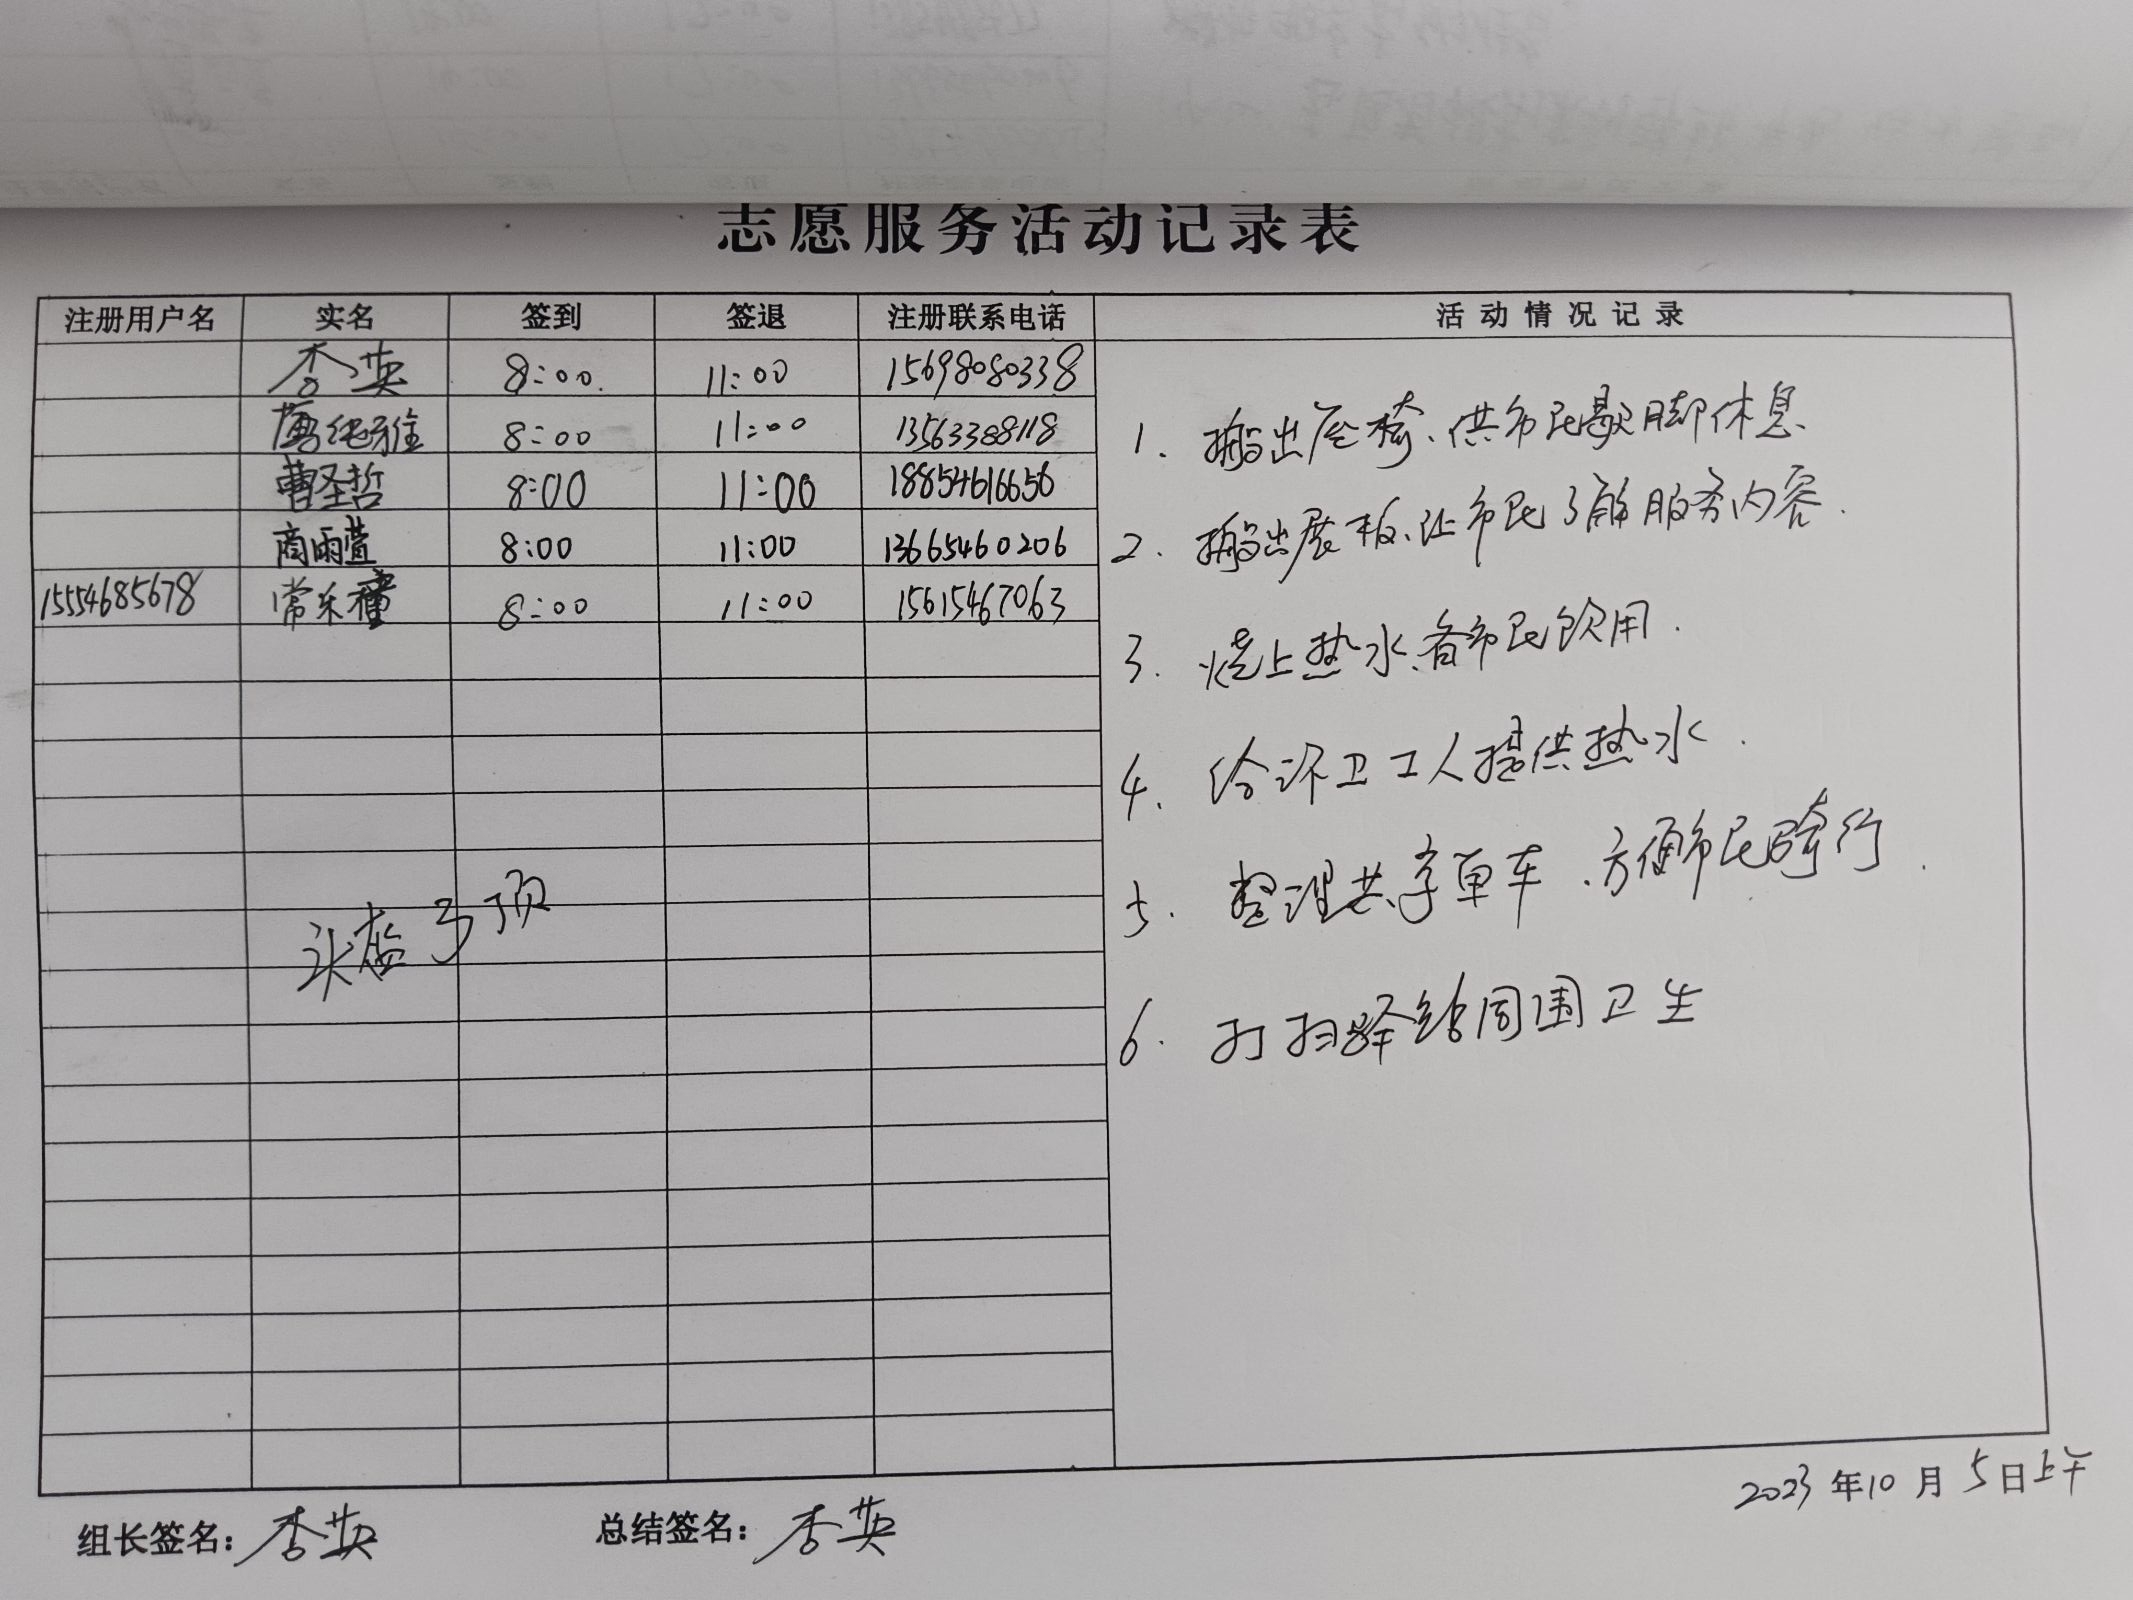 志愿服务活动记录表
注册用户名 实名 签到 签退 注册联系电话 活动情况记录
李英 8:00. 11:00 15698080338
纯雅 8:00 11:00 13563388118
曹圣哲 8:00 11:00 18854616656
商雨萱 8:00 11:00 13665460206
15554685678 常乐 8:00 11:00 15615467063
1. 搬出座椅、供市民歇脚休息
2. 搬出展板、让市民了解服务内容.
3. 烧上热水、备市民饮用.
4. 给环卫工人提供热水.
5. 整理共享单车、方便市民骑行.
6. 打扫驿站周围卫生
头盔3顶
2023年10月5日上午
组长签名：李英 总结签名：李英